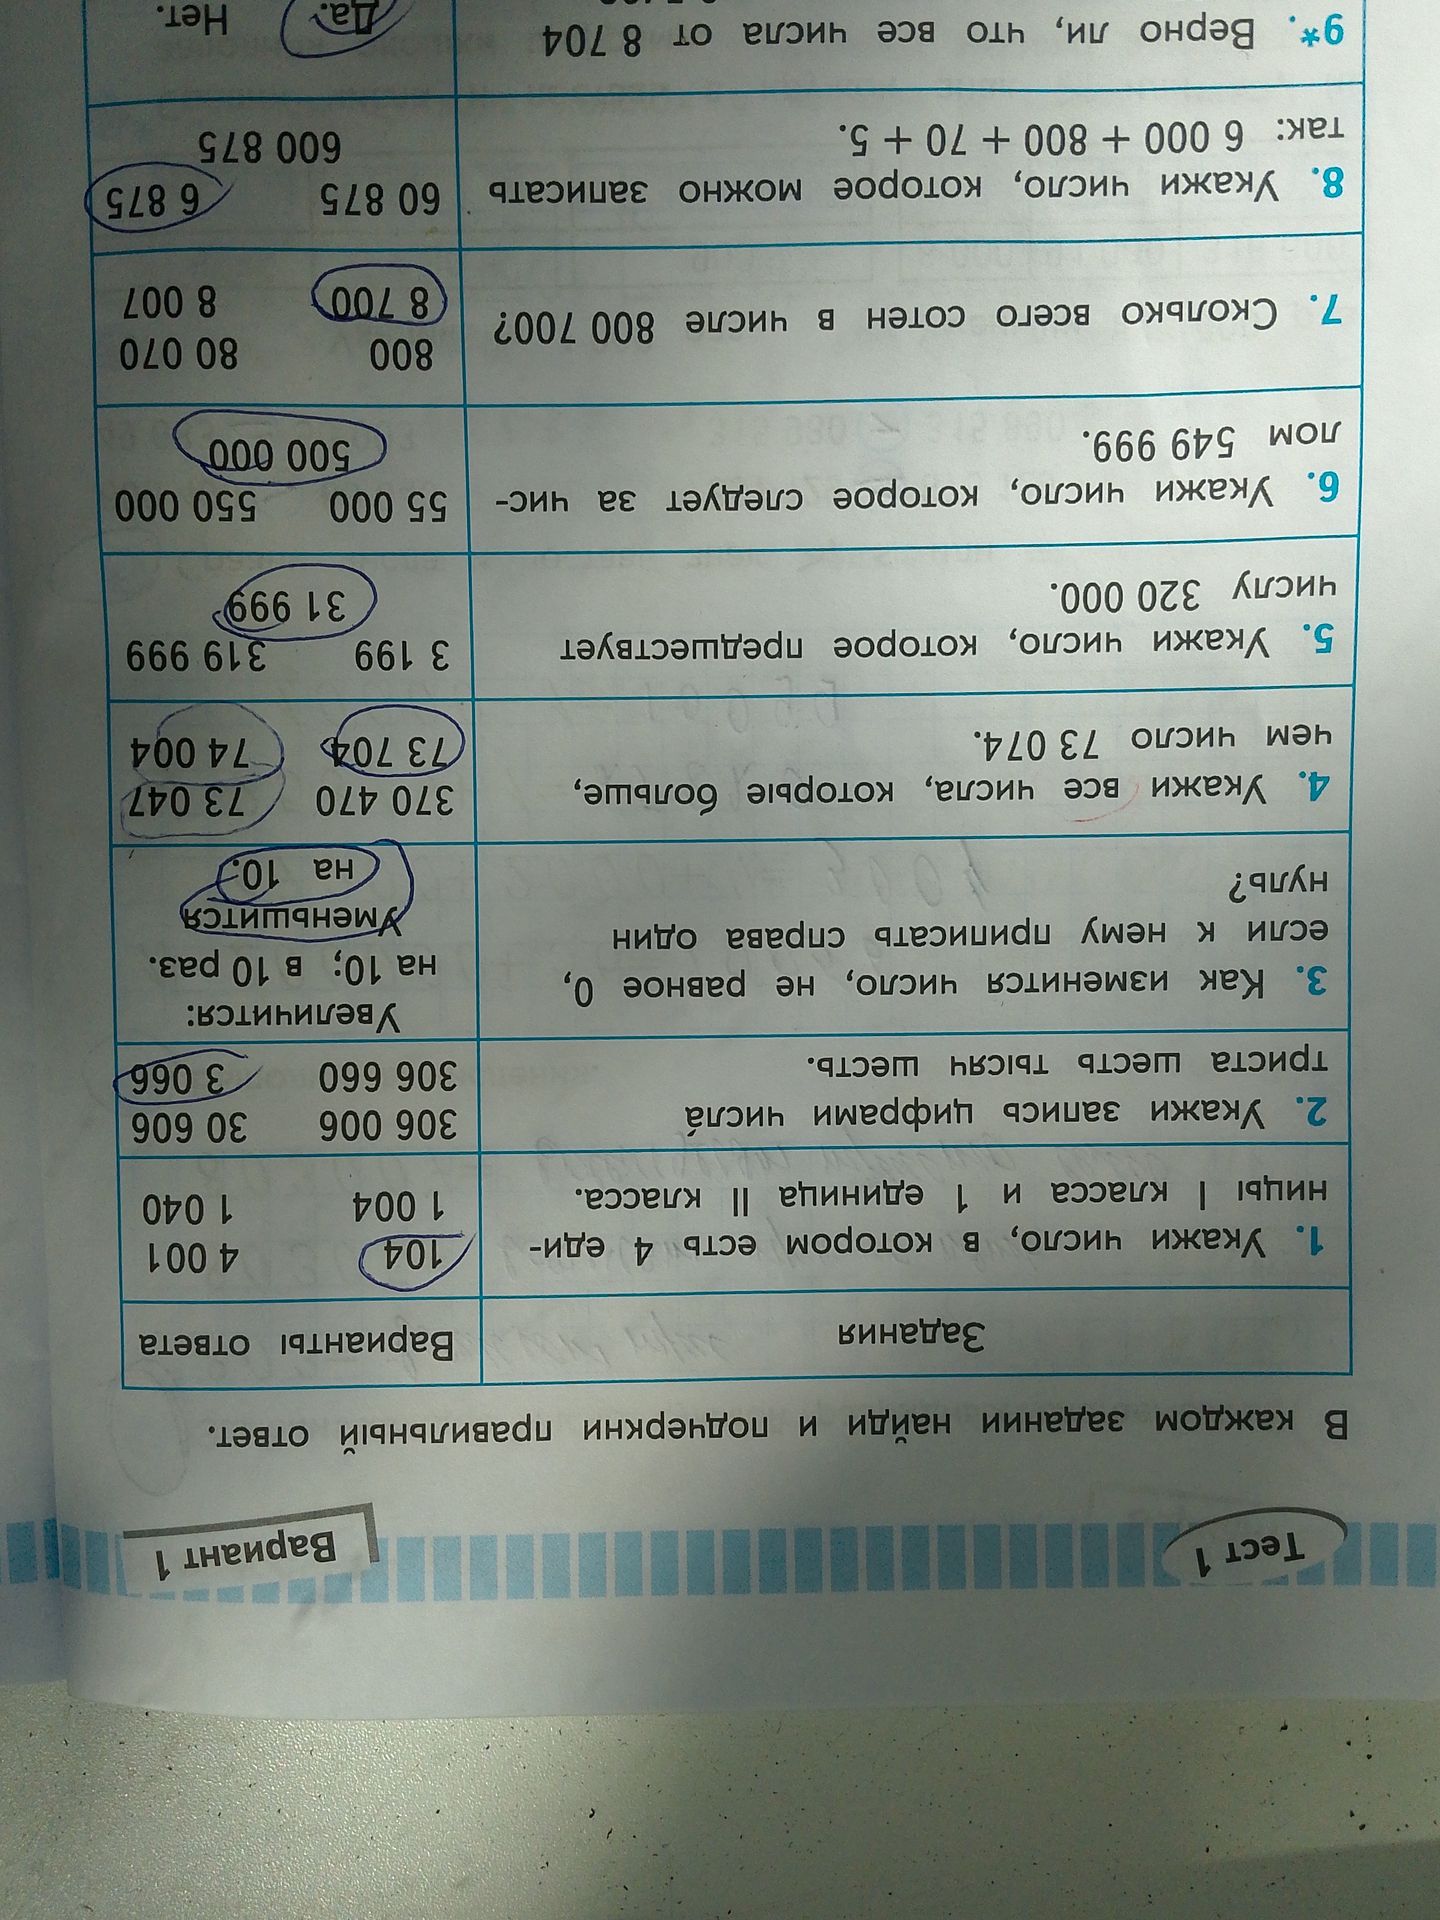 Тест 1
Вариант 1
В каждом задании найди и подчеркни правильный ответ.
Задания
Варианты ответа
1. Укажи число, в котором есть 4 еди-
ницы I класса и 1 единица II класса.
104 4 001
1 004 1 040
2. Укажи запись цифрами числа́
триста шесть тысяч шесть.
306 006 30 606
306 660 3 066
3. Как изменится число, не равное 0,
если к нему приписать справа один
нуль?
Увеличится:
на 10; в 10 раз.
Уменьшится
на 10.
4. Укажи все числа, которые больше,
чем число 73 074.
370 470 73 047
73 704 74 004
5. Укажи число, которое предшествует
числу 320 000.
3 199 319 999
31 999
6. Укажи число, которое следует за чис-
лом 549 999.
55 000 550 000
500 000
7. Сколько всего сотен в числе 800 700?
800 80 070
8 700 8 007
8. Укажи число, которое можно записать
так: 6 000 + 800 + 70 + 5.
60 875 6 875
600 875
9*. Верно ли, что все числа от 8 704
Да. Нет.